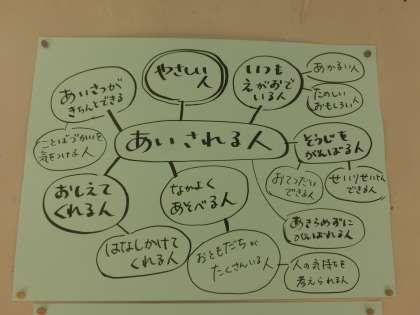 あいさつが
きちんとできる
やさしい
人
いつも
えがおで
いる人
あかるい人
たのしい
おもしろい人
ことばづかいを
気をつける人
あいされる人
そうじを
がんばる人
おてつだい
できる人
せいりせいとん
できる人
おしえて
くれる人
なかよく
あそべる人
あきらめずに
がんばれる人
はなしかけて
くれる人
おともだちが
たくさんいる人
人の気持ちを
考えられる人